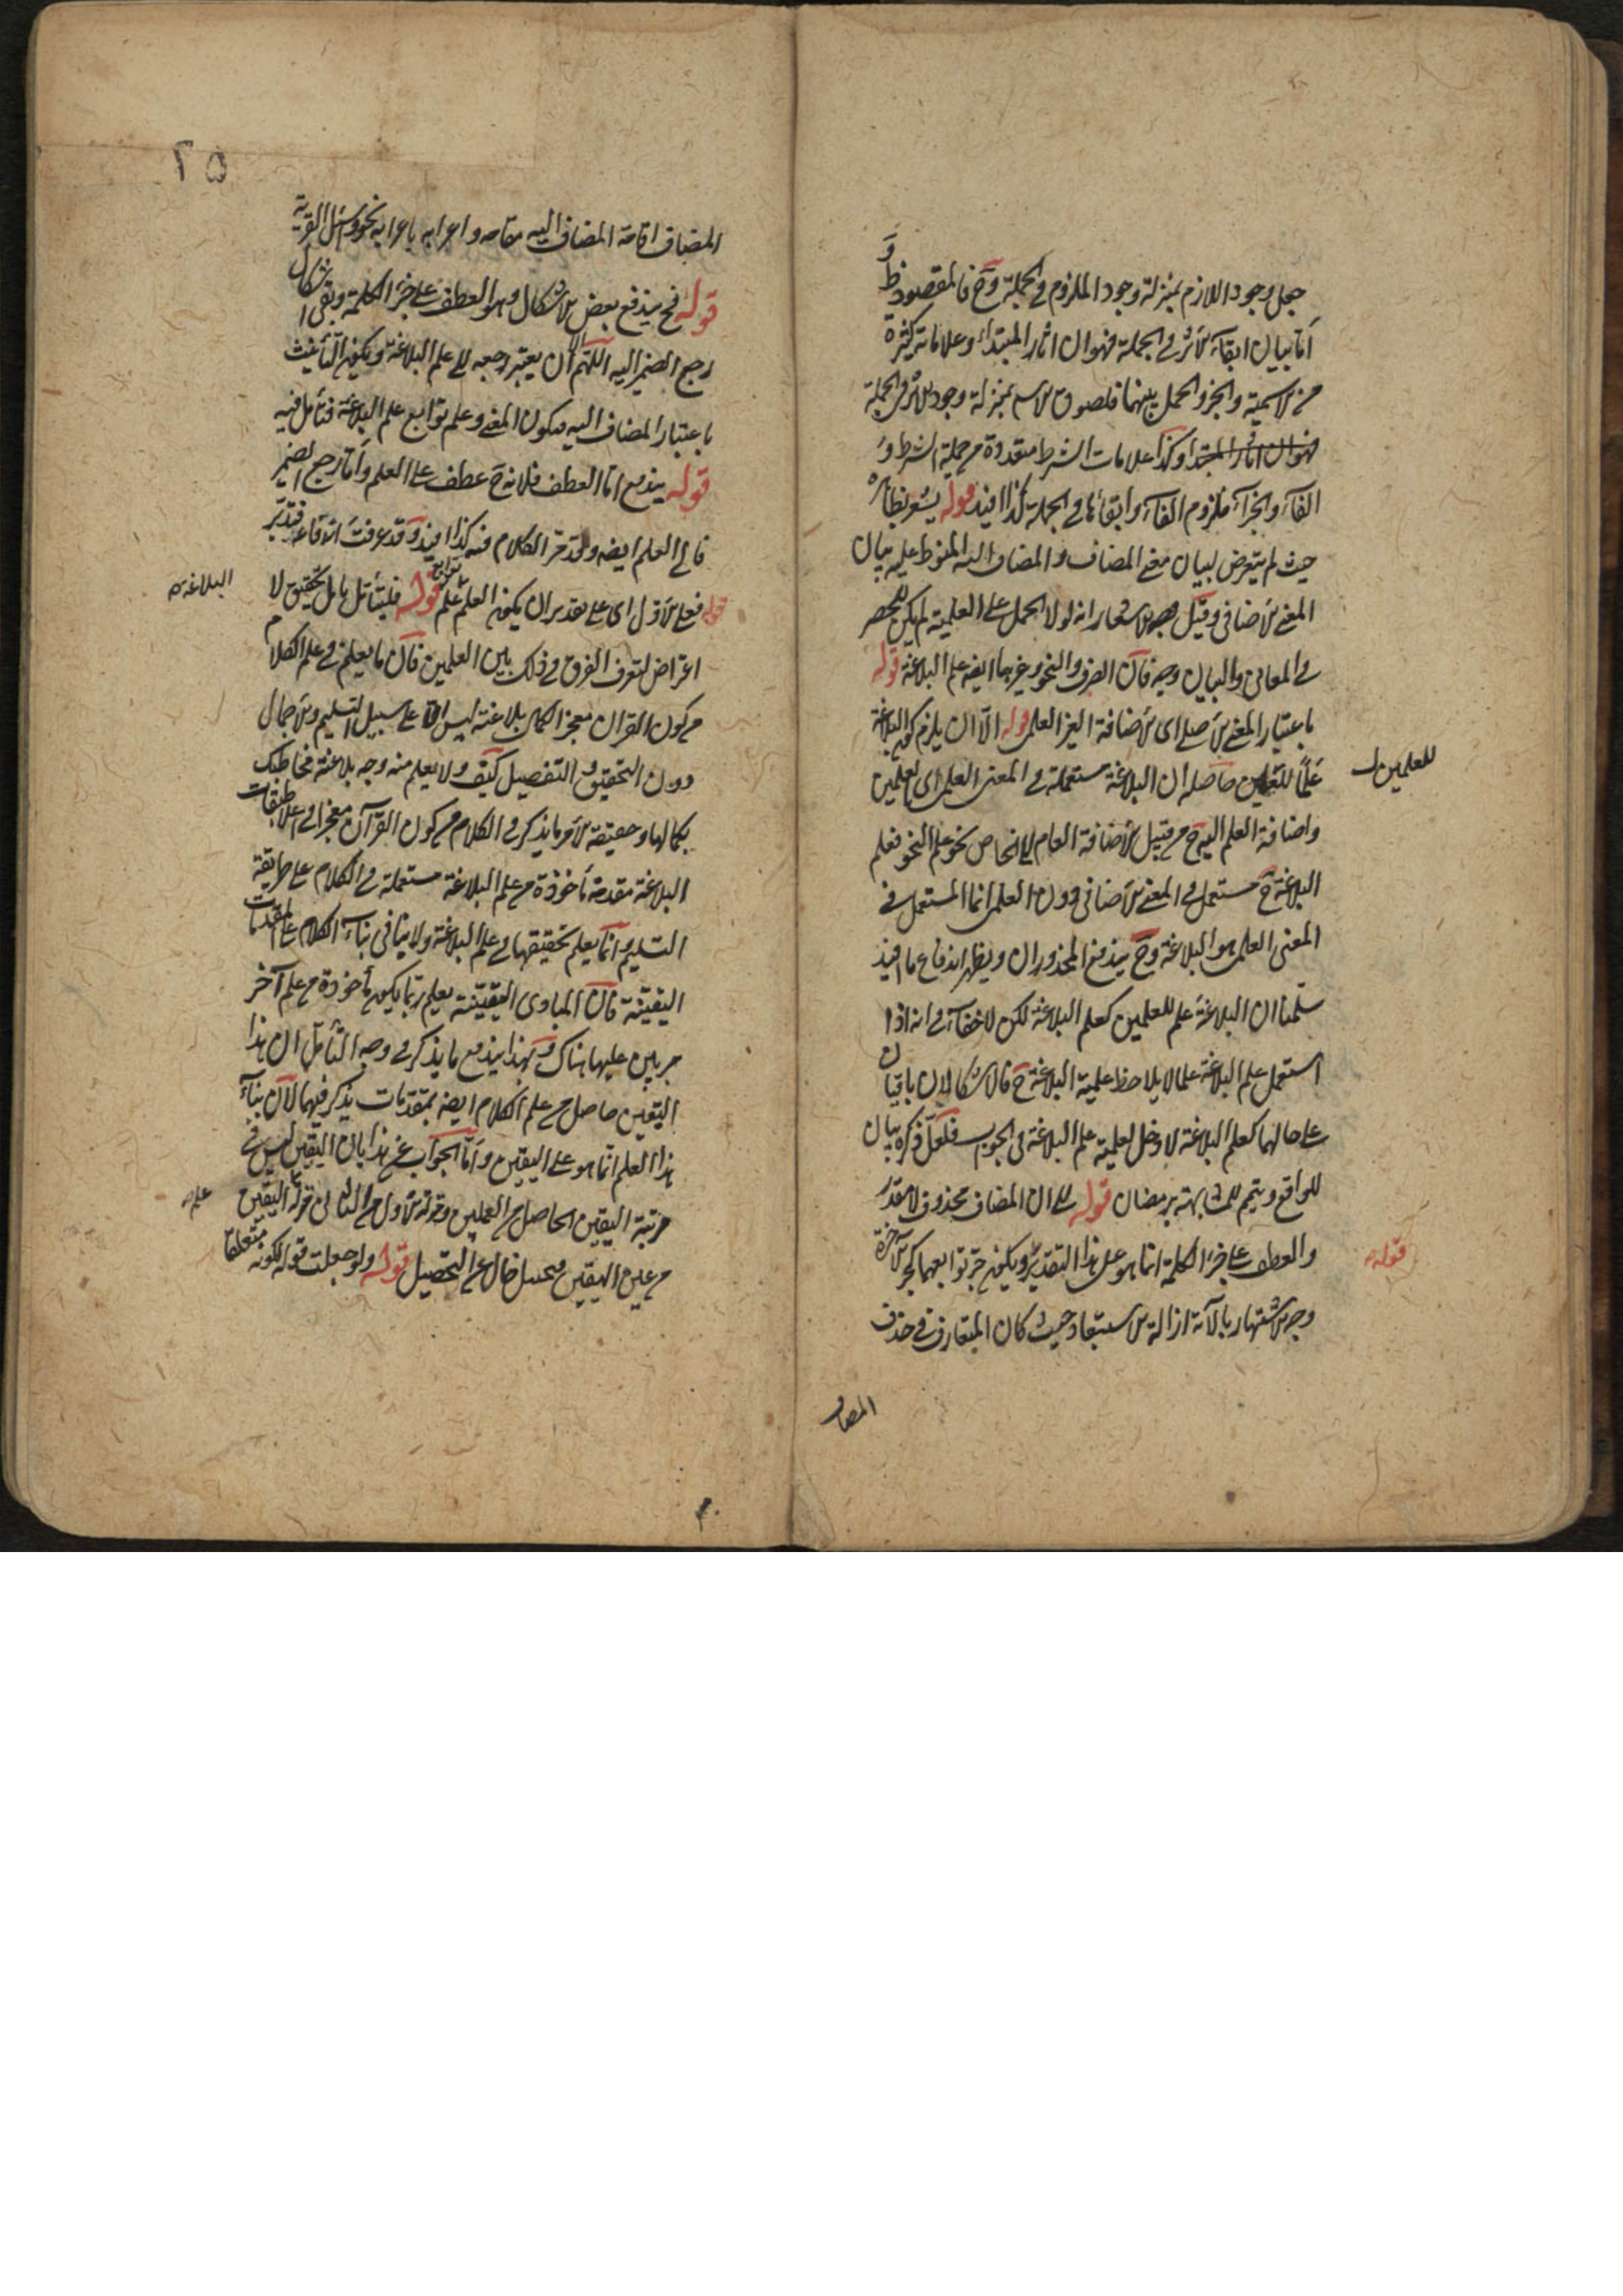 جعل وجود اللازم بمنزلة وجود الملزوم في الجملة وح فالمقصود ظ و
اما بيان ابقاء الاثر في الجملة فهو ان اثار المبتداء وعلاماته كثيرة
من الاسمية والخبر والحمل بينهما فلصوق الاسم بمنزلة وجود الاثر في الجملة
فهو ان اثار المبتدا وكذا علامات الشرط متعددة من جملة الشرط و
الفاء والجزاء ملزوم الفاء وابقائها في الجملة كذا افيد قوله يشعر بظاهره
حيث لم يتعرض لبيان معنى المضاف والمضاف اليه المنوط عليه بيان
المعنى الاضافي وقيل وجه الاشعار انه لولا الحمل على العلمية لم يكن للحصر
في المعاني والبيان وجه فان الصرف والنحو وغيرهما ايضه علم البلاغة قوله
باعتبار المعنى الاصلي اى الاضافة الغير العلمى قوله الا ان يلزم كون البلاغة
علما للعلمين حاصله ان البلاغة مستعملة في المعنى العلمى اى لعلمين
للعلمين
واضافة العلم اليه ح من قبيل الاضافة العام الى الخاص نحو علم النحو فعلم
البلاغة ح مستعمل في المعنى الاضافي دون العلمى انما المستعمل في
المعنى العلمى هو البلاغة وح يندفع المحذوران ويظهر اندفاع ما افيد
سلمنا ان البلاغة علم للعلمين كعلم البلاغة لكن لا خفاء في انه اذا
استعمل علم البلاغة علما لا يلاحظ علمية البلاغة ح فالاشكالان باقيان
على حالهما كعلم البلاغة لا دخل لعلمية علم البلاغة في الجواب فلعل ذكره بيان
للواقع وتتميم للمشابهة برمضان قوله على ان المضاف محذوف لا مقدر
والعطف على جزء الكلمة انما هو على هذا التقدير ويكون جر توابعهما كجر الآخرة
قوله
وجه الاشتهار بالآية ازالة الاستبعاد حيث كان المتعارف في حذف
المضاف
٢٥
المضاف اقامة المضاف اليه مقامه واعرابه باعرابه نحو واسئل القرية
قوله فح يندفع بعض الاشكال وهو العطف على جزء الكلمة وبقى اشكال
رجع الضمير اليه اللهم الا ان يعتبر رجعه الى علم البلاغة ويكون التأنيث
باعتبار المضاف اليه فيكون المعنى وعلم توابع علم البلاغة فتأمل فيه
قوله يندفع اما العطف فلانه ح عطف على العلم واما رجع الضمير
فالى العلم ايضه وقد مر الكلام فيه كذا افيد وقد عرفت اندفاعه فتدبر
قوله فعلى الاول اى على تقدير ان يكون العلم علم توابع قوله فليتأمل تأمل تحقيق لا
البلاغة
اعتراض لتعرف الفرق في ذلك بين العلمين فان ما يعلم في علم الكلام
من كون القران معجزا لكمال بلاغته ليس الا على سبيل التسليم والاجمال
دون التحقيق والتفصيل كيف ولا يعلم منه وجه بلاغته فما ظنك
بكمالها وحقيقة الامر ما يذكر في الكلام من كون القرآن معجزا في اعلا طبقات
البلاغة مقدمة مأخوذة من علم البلاغة مستعملة في الكلام على طريقة
التسليم وانما يعلم تحقيقها في علم البلاغة ولا ينافي بناء الكلام على المقدمات
اليقينية فان المبادى اليقينية يعلم ربما يكون مأخوذة من علم آخر
مبرهن عليها هناك وبهذا يندفع ما يذكر في وجه التأمل ان هذا
اليقين حاصل من علم الكلام ايضه بمقدمات يذكر فيها لان بناء
هذا العلم انما هو على اليقين واما الجواب عن هذا بان اليقين ليس في
مرتبة اليقين الحاصل من العلمين وقوة الاول من الثاني قوة علم اليقين
علم
من عين اليقين فمحل خال عن التحصيل قوله ولو جعلت قوله لكونه متعلقا